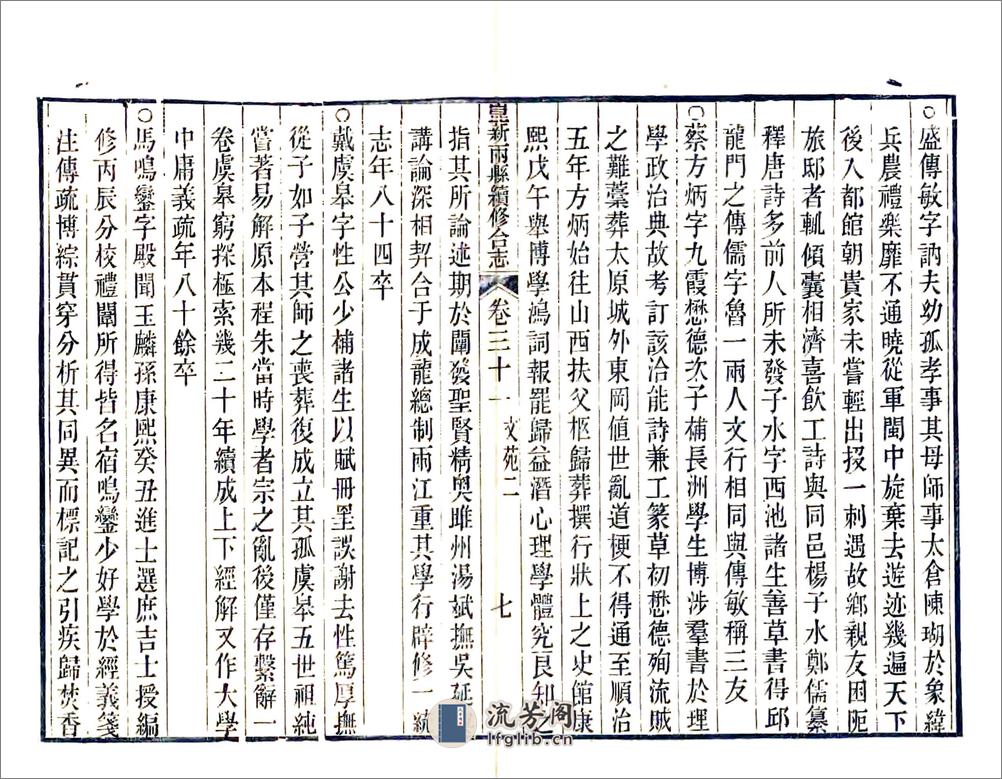 ○盛傳敏字訥夫幼孤孝事其母師事太倉陳瑚於象緯
兵農禮樂靡不通曉從軍閩中旋棄去遊迹幾遍天下
後入都館朝貴家未嘗輕出投一刺遇故鄉親友困阨
旅邸者輒傾囊相濟喜飲工詩與同邑楊子水鄭儒纂
釋唐詩多前人所未發子水字西池諸生善草書得邱
龍門之傳儒字魯一兩人文行相同與傳敏稱三友
○蔡方炳字九霞懋德次子補長洲學生博涉羣書於理
學政治典故考訂該洽能詩兼工篆草初懋德殉流賊
之難藁葬太原城外東岡值世亂道梗不得通至順治
五年方炳始往山西扶父柩歸葬撰行狀上之史館康
熙戊午舉博學鴻詞報罷歸益潛心理學體究良知之
崑新兩縣續修合志 卷三十一 文苑二 七
指其所論述期於闡發聖賢精奧雎州湯斌撫吳延
講論深相契合于成龍總制兩江重其學行辟修一統
志年八十四卒
○戴虞皋字性公少補諸生以賦冊罣誤謝去性篤厚撫
從子如子營其師之喪葬復成立其孤虞皋五世祖純
嘗著易解原本程朱當時學者宗之亂後僅存繫辭一
卷虞皋窮探極索幾二十年續成上下經解又作大學
中庸義疏年八十餘卒
○馬鳴鑾字殿聞玉麟孫康熙癸丑進士選庶吉士授編
修丙辰分校禮闈所得皆名宿鳴鑾少好學於經義箋
注傳疏博綜貫穿分析其同異而標記之引疾歸焚香
流芳阁
lfglib.cn